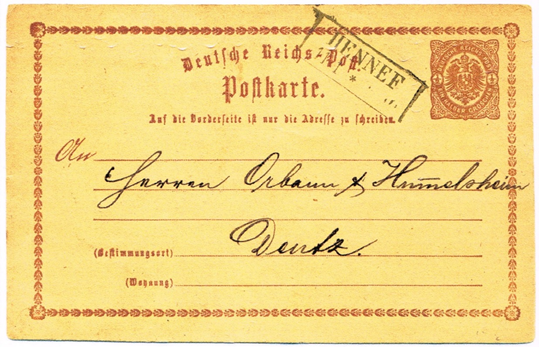 HENNEF
*
Deutsche Reichs-Post.
Postkarte.
Auf die Vorderseite ist nur die Adresse zu schreiben.
An
Herren Orbann & Hummelsheim
(Bestimmungsort) Deutz.
(Wohnung)